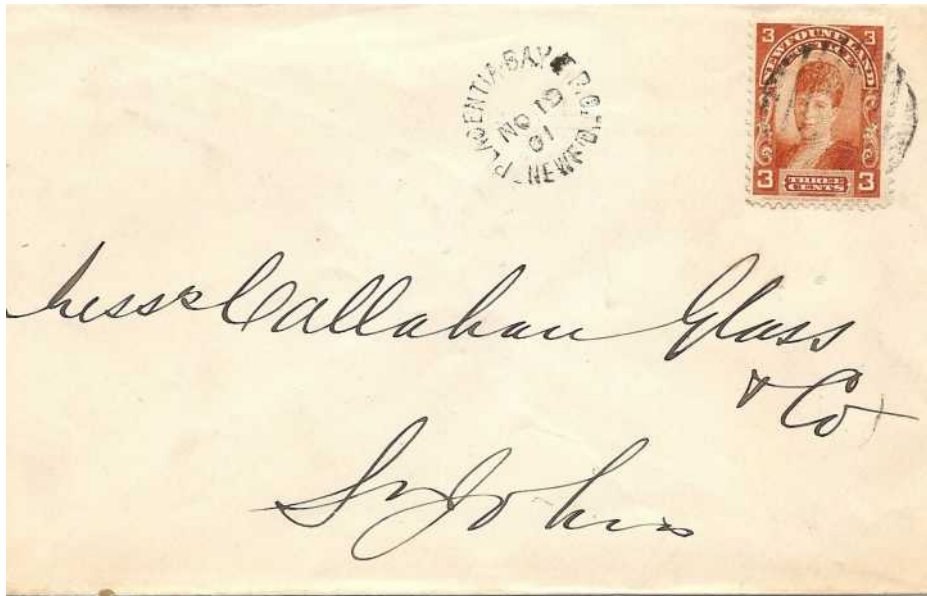 PLACENTIA·BAY T.P.O.
NO 19
01
NEWF'D.
3 3
NEWFOUNDLAND
POSTAGE
3 THREE CENTS 3
Messrs Callahan Glass
& Co
St John's